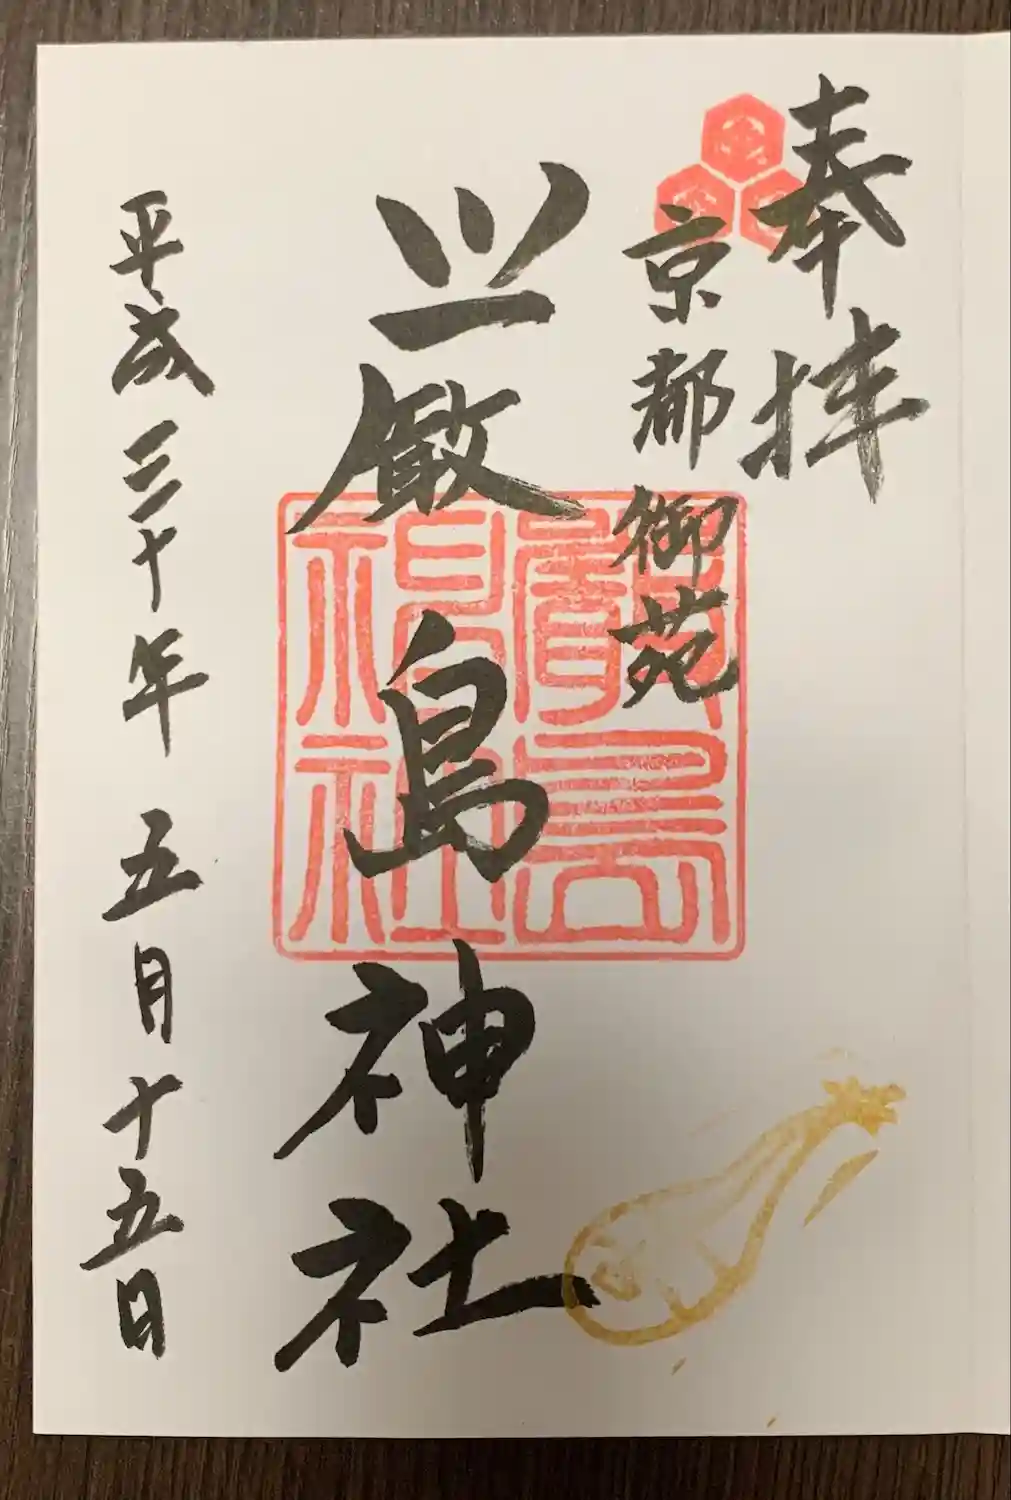 奉拝
京都御苑
厳島神社
嚴島神社
平成三十年五月十五日